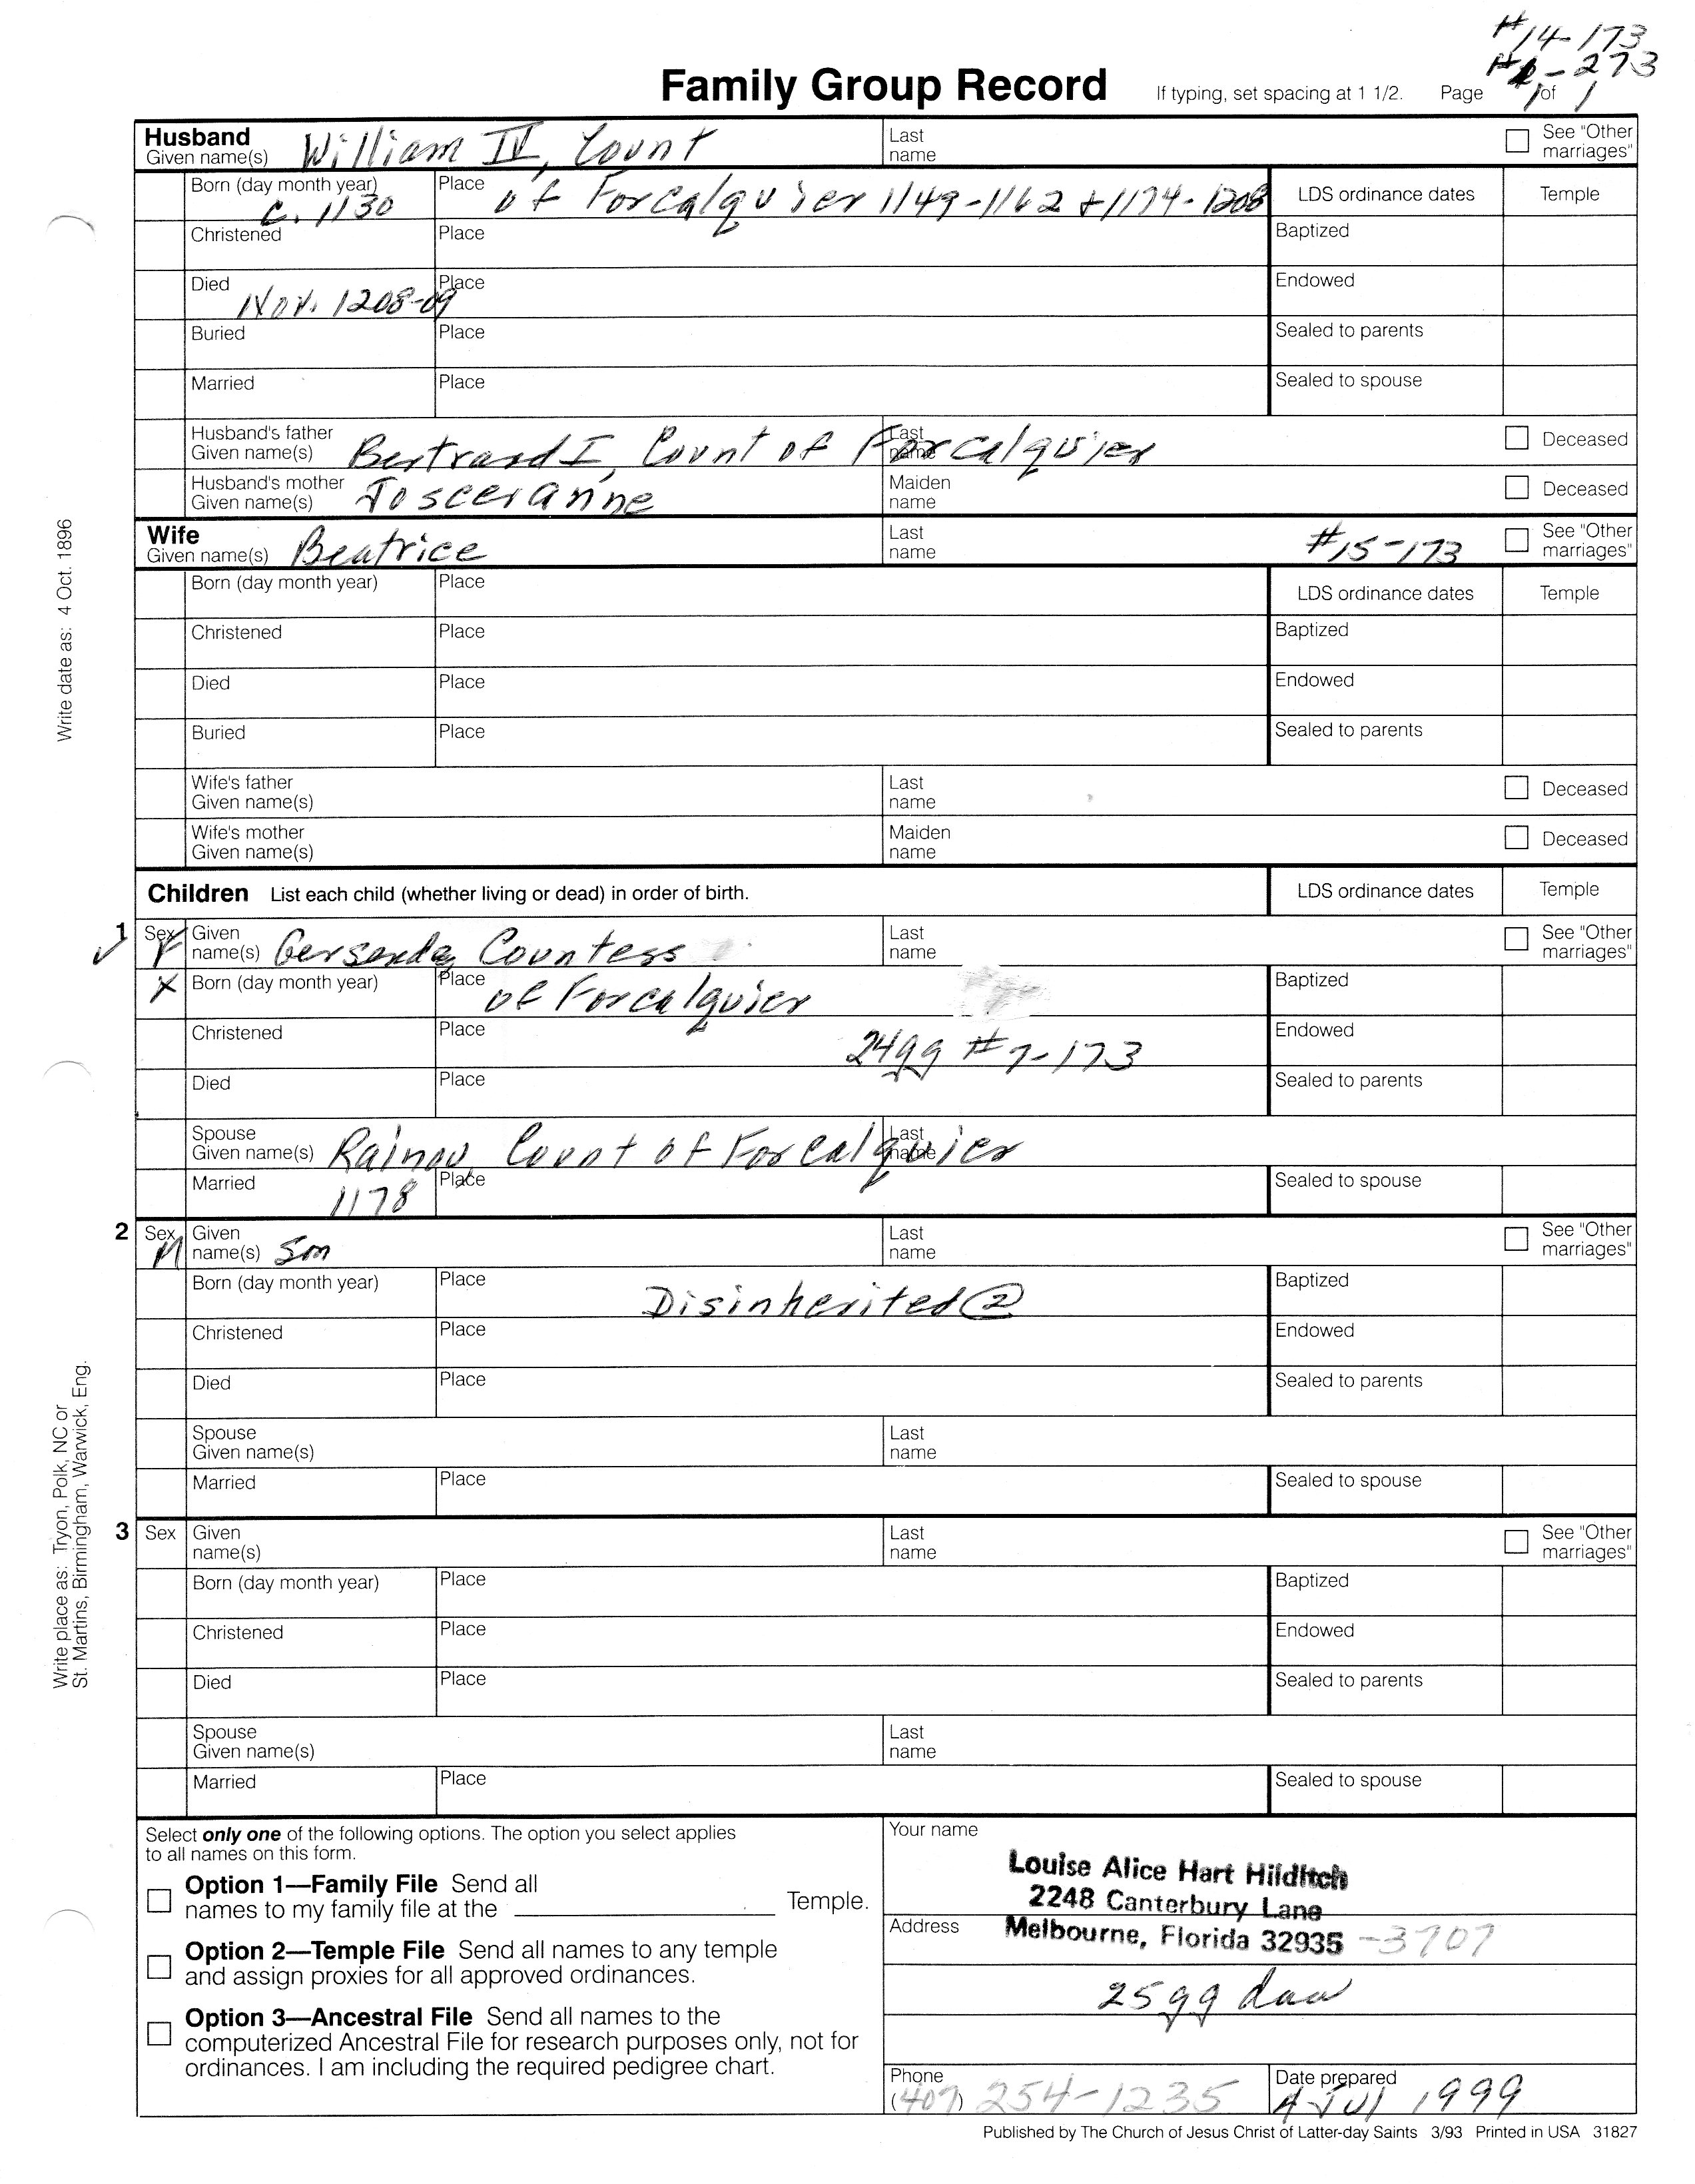 #14-173
Family Group Record If typing, set spacing at 1 1/2. Page 1 of 1
-273
Husband
Given name(s) William IV, Count Last name See "Other marriages"
Born (day month year) c. 1130 Place of Forcalquier 1149-1162 + 1174-1208 LDS ordinance dates Temple
Christened Place Baptized
Died Nov. 1208-09 Place Endowed
Buried Place Sealed to parents
Married Place Sealed to spouse
Husband's father Given name(s) Bertrand I, Count of Forcalquier Last name Deceased
Husband's mother Given name(s) Josceranne Maiden name Deceased
Wife
Given name(s) Beatrice Last name #15-173 See "Other marriages"
Born (day month year) Place LDS ordinance dates Temple
Christened Place Baptized
Died Place Endowed
Buried Place Sealed to parents
Wife's father Given name(s) Last name Deceased
Wife's mother Given name(s) Maiden name Deceased
Children List each child (whether living or dead) in order of birth. LDS ordinance dates Temple
1 Sex F Given name(s) Gersenda, Countess Last name See "Other marriages"
X Born (day month year) Place of Forcalquier Baptized
Christened Place 24gg #7-173 Endowed
Died Place Sealed to parents
Spouse Given name(s) Rainou, Count of Forcalquier Last name
Married 1178 Place Sealed to spouse
2 Sex M Given name(s) Son Last name See "Other marriages"
Born (day month year) Place Disinherited ② Baptized
Christened Place Endowed
Died Place Sealed to parents
Spouse Given name(s) Last name
Married Place Sealed to spouse
3 Sex Given name(s) Last name See "Other marriages"
Born (day month year) Place Baptized
Christened Place Endowed
Died Place Sealed to parents
Spouse Given name(s) Last name
Married Place Sealed to spouse
Select only one of the following options. The option you select applies
to all names on this form.
Option 1—Family File Send all
names to my family file at the Temple.
Option 2—Temple File Send all names to any temple
and assign proxies for all approved ordinances.
Option 3—Ancestral File Send all names to the
computerized Ancestral File for research purposes only, not for
ordinances. I am including the required pedigree chart.
Your name
Louise Alice Hart Hilditch
2248 Canterbury Lane
Address Melbourne, Florida 32935 -3707
25gg dau
Phone (407) 254-1235 Date prepared 4 Jul 1999
Published by The Church of Jesus Christ of Latter-day Saints 3/93 Printed in USA 31827
Write date as: 4 Oct. 1896
Write place as: Tryon, Polk, NC or
St. Martins, Birmingham, Warwick, Eng.